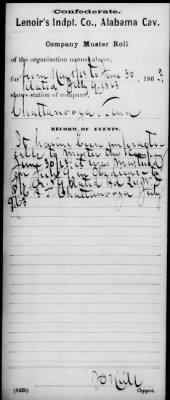 Confederate.
Lenoir's Indpt. Co., Alabama Cav.
Company Muster Roll
of the organization named above,
for from May 1st to June 30, 1863
dated July 9, 1863
shows station of company,
Chattanooga, Tenn
RECORD OF EVENTS.
It having been impractic-
able to muster this
June 30, 1863, it was mustered
on July 9 in obedience to
dated
Chattanooga July
9/63
(642b) Copyist.